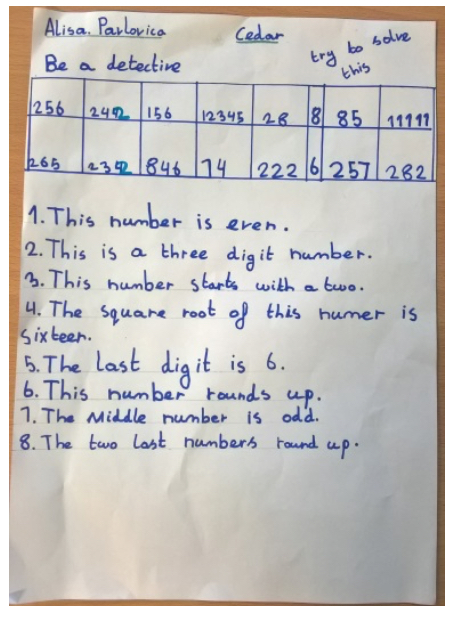 Alisa. Pavlovica Cedar try to solve
Be a detective this
256 242 156 12345 28 8 85 11111
265 2342 846 74 222 6 257 282
1. This number is even.
2. This is a three digit number.
3. This number starts with a two.
4. The square root of this numer is
sixteen.
5. The last digit is 6.
6. This number rounds up.
7. The Middle number is odd.
8. The two last numbers round up.